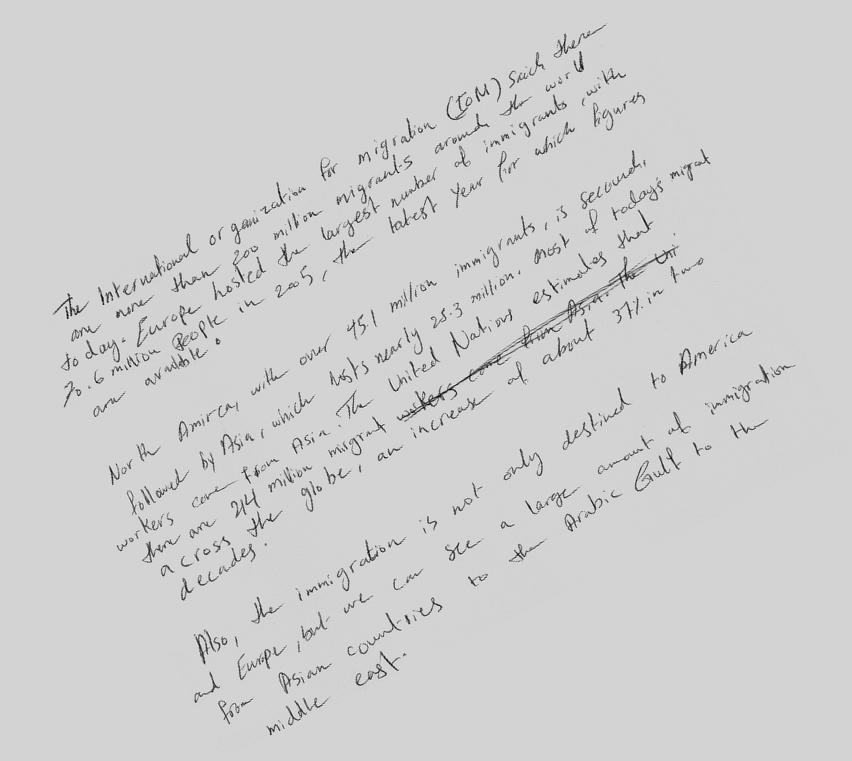 The International organization for migration (IOM) said there
are more than 200 million migrants around the world
today. Europe hosted the largest number of immigrants, with
70.6 million people in 2005, the latest year for which figures
are available.
North Amirca, with over 45.1 million immigrants, is second,
followed by Asia, which hosts nearly 25.3 million. Most of today's migrat
workers come from Asia. The United Nations estimates that
there are 214 million migrant workers come from Asia. The Uni
across the globe, an increase of about 37% in two
decades.
Also, the immigration is not only destined to America
and Europe, but we can see a large amount of immigration
from Asian countries to the Arabic Gulf to the
middle east.